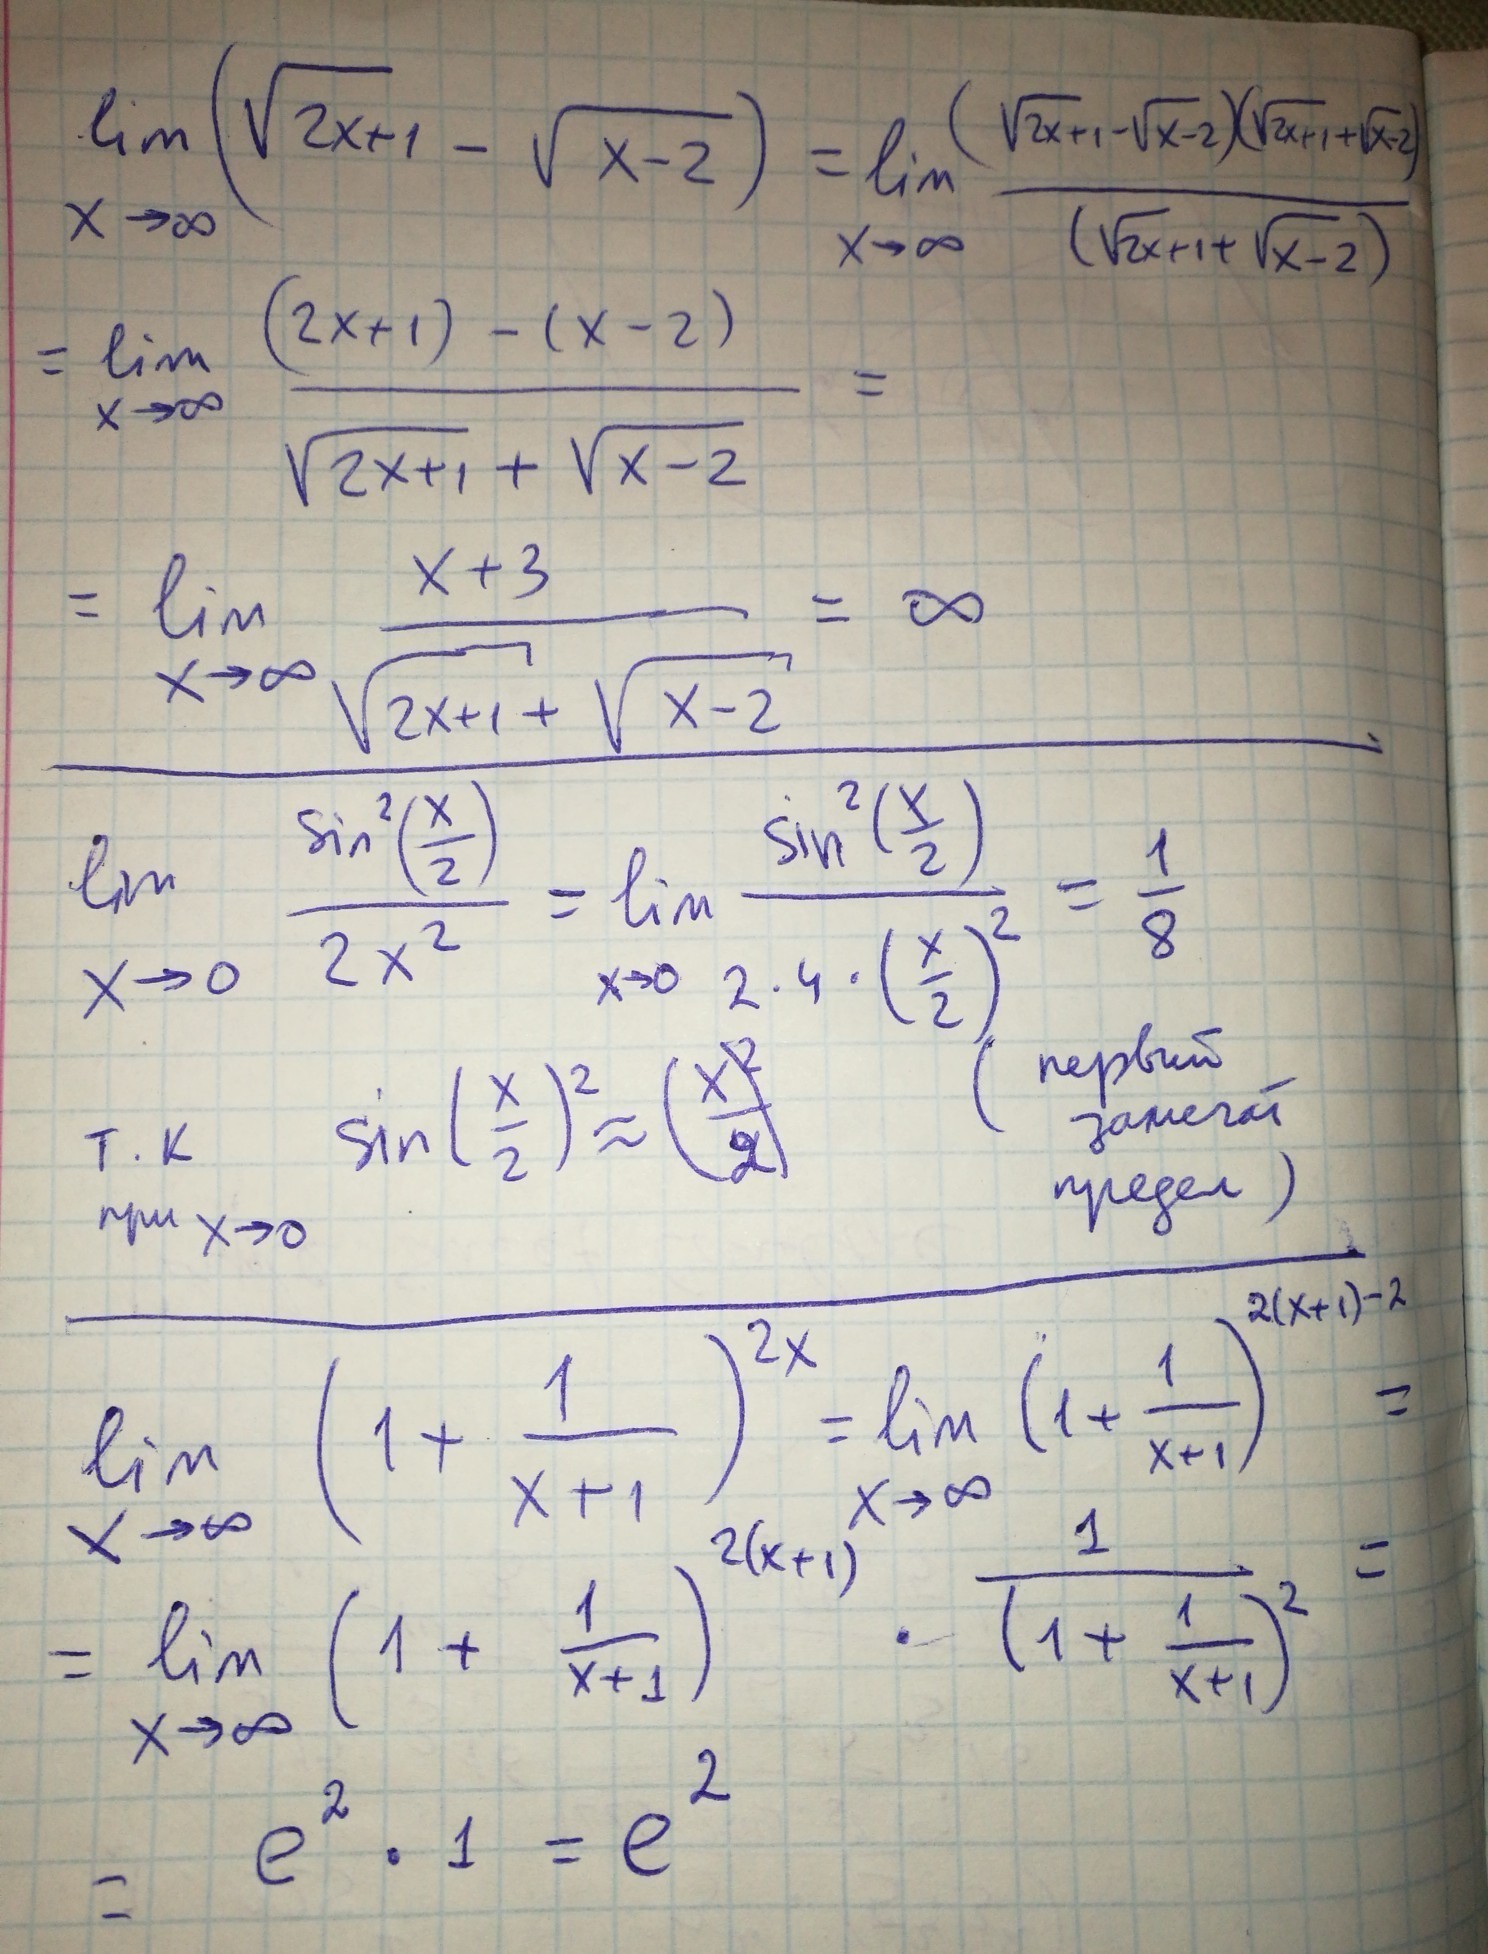 lim x→∞ (√(2x+1) - √(x-2)) = lim x→∞ ((√(2x+1) - √(x-2))(√(2x+1) + √(x-2))) / (√(2x+1) + √(x-2))
= lim x→∞ ((2x+1) - (x-2)) / (√(2x+1) + √(x-2)) =
= lim x→∞ (x+3) / (√(2x+1) + √(x-2)) = ∞
lim x→0 sin²(x/2) / 2x² = lim x→0 sin²(x/2) / (2·4·(x/2)²) = 1/8
т.к при x→0 sin(x/2)² ≈ (x/2)² (первый
замечат
предел)
lim x→∞ (1 + 1/(x+1))^(2x) = lim x→∞ (1 + 1/(x+1))^(2(x+1)-2) =
= lim x→∞ (1 + 1/(x+1))^(2(x+1)) · 1/(1 + 1/(x+1))² =
= e² · 1 = e²